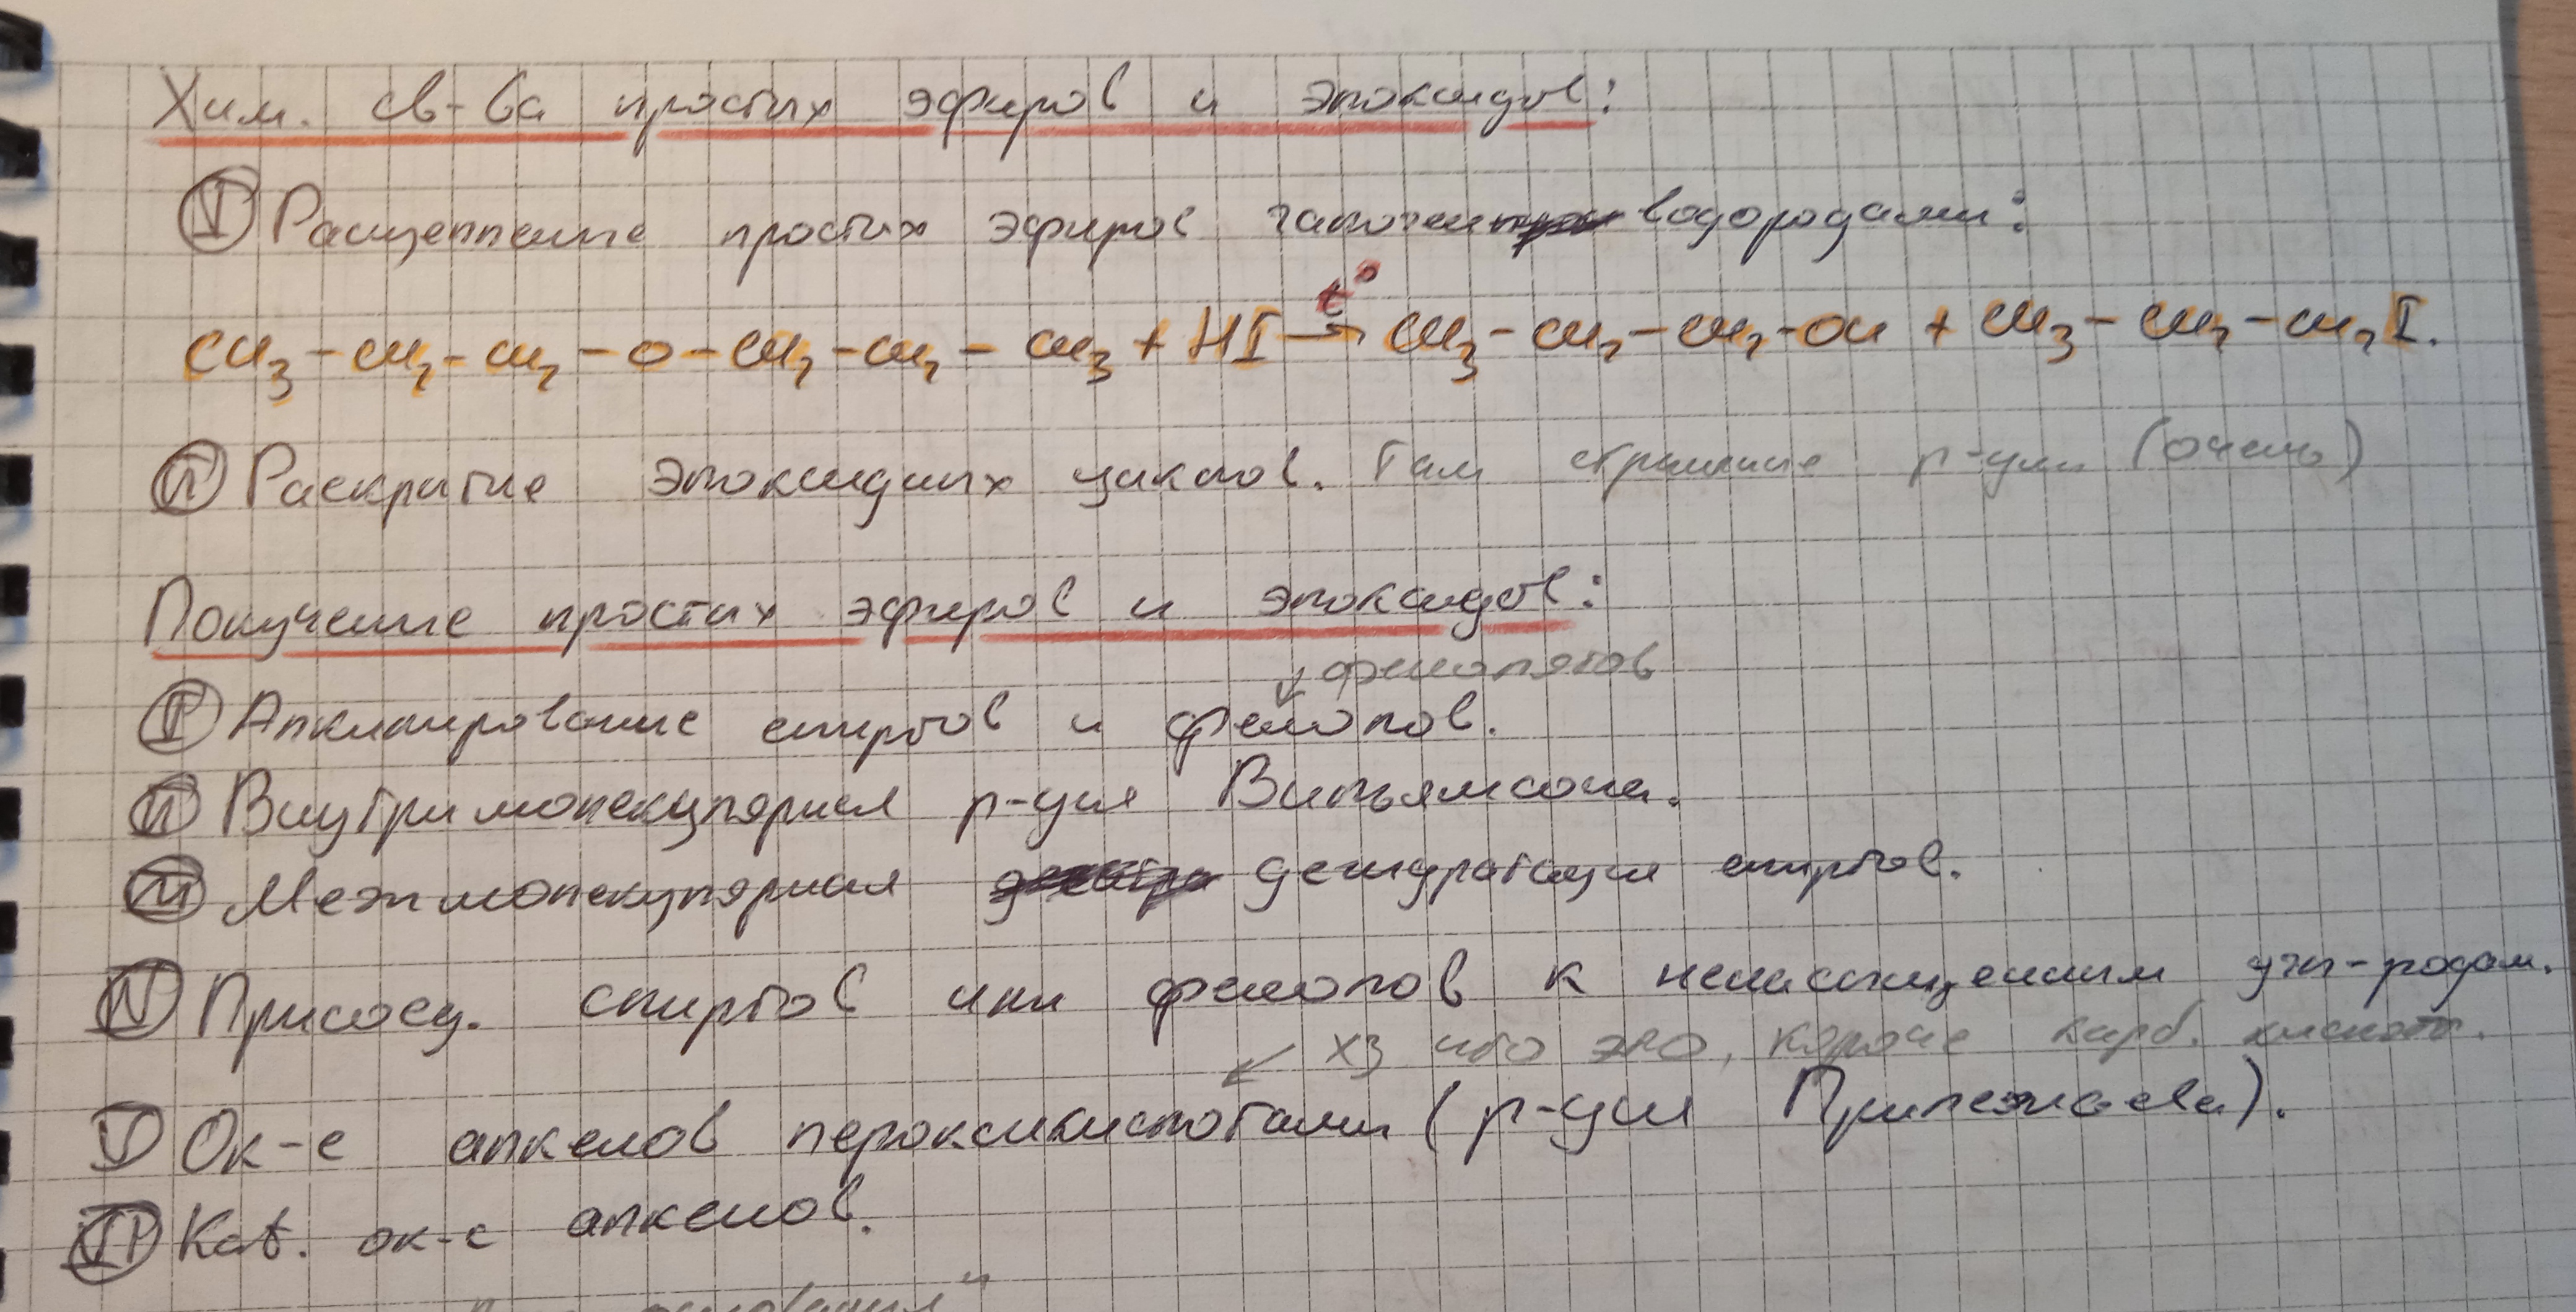 Хим. св-ва простых эфиров и эпоксидов:
I Расщепление простых эфиров галогенводородами:
t°
CH3 - CH2 - CH2 - O - CH2 - CH2 - CH3 + HI → CH3 - CH2 - CH2 - OH + CH3 - CH2 - CH2I.
II Раскрытие эпоксидных циклов. Там страшные р-ции (очень)
Получение простых эфиров и эпоксидов:
↙ фенолятов
I Алкилирование спиртов и фенолов.
II Внутримолекулярная р-ция Вильямсона.
III Межмолекулярная дегидратация спиртов.
IV Присоед. спиртов или фенолов к ненасыщенным угл-родам.
↙ ХЗ что это, короче карб. кислоты.
V Ок-е алкенов пероксикислотами (р-ция Прилежаева).
VI Kat. ок-е алкенов.
основания"